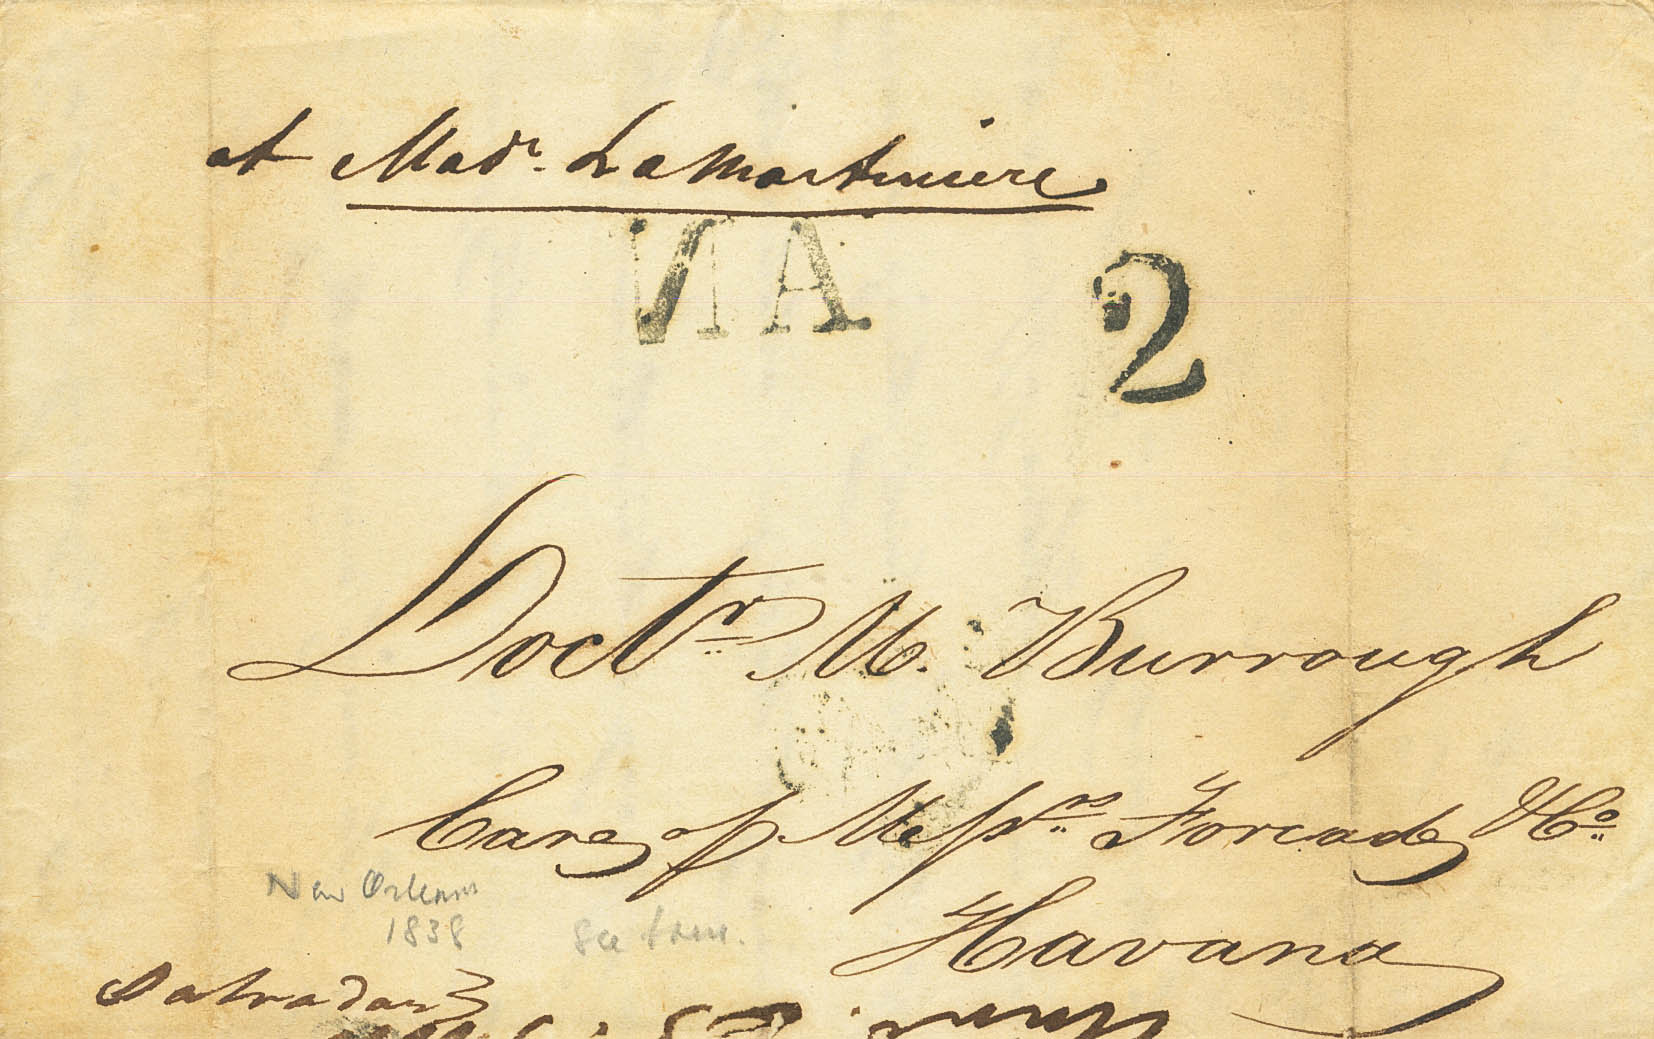 at Madᵉ. LaMartiniere
NA 2
Doctʳ M. Burrough
Care of Messʳˢ Forcade & Cº
Havana
New Orleans
1838
See